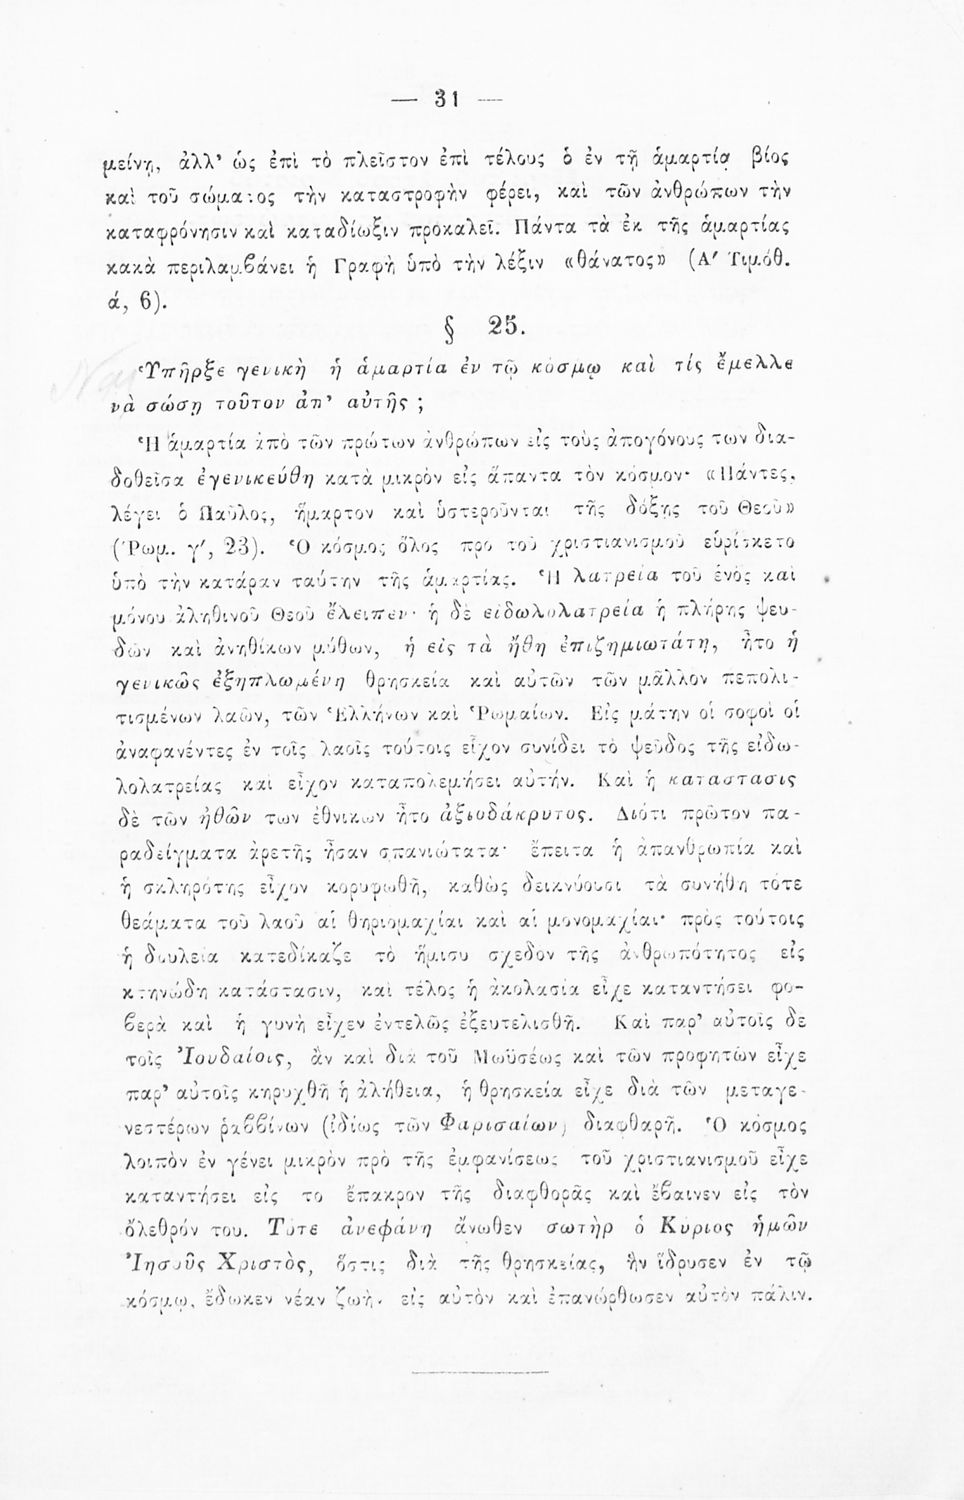 — 31 —
μείνῃ, ἀλλ' ὡς ἐπὶ τὸ πλεῖστον ἐπὶ τέλους ὁ ἐν τῇ ἁμαρτίᾳ βίος
καὶ τοῦ σώματος τὴν καταστροφὴν φέρει, καὶ τῶν ἀνθρώπων τὴν
καταφρόνησιν καὶ καταδίωξιν προκαλεῖ. Πάντα τὰ ἐκ τῆς ἁμαρτίας
κακὰ περιλαμβάνει ἡ Γραφὴ ὑπὸ τὴν λέξιν «θάνατος» (Α' Τιμόθ.
ά, 6).
§ 25.
Ὑπῆρξε γενικὴ ἡ ἁμαρτία ἐν τῷ κόσμῳ καὶ τίς ἔμελλε
νὰ σώσῃ τοῦτον ἀπ' αὐτῆς ;
Ἡ ἁμαρτία ἀπὸ τῶν πρώτων ἀνθρώπων εἰς τοὺς ἀπογόνους των δια-
δοθεῖσα ἐγενικεύθη κατὰ μικρὸν εἰς ἅπαντα τὸν κόσμον· «Πάντες,
λέγει ὁ Παῦλος, ἥμαρτον καὶ ὑστεροῦνται τῆς δόξης τοῦ Θεοῦ»
(Ῥωμ. γ', 23). Ὁ κόσμος ὅλος προ τοῦ χριστιανισμοῦ εὑρίσκετο
ὑπὸ τὴν κατάραν ταύτην τῆς ἁμαρτίας. Ἡ λατρεία τοῦ ἑνὸς καὶ
μόνου ἀληθινοῦ Θεοῦ ἔλειπεν· ἡ δὲ εἰδωλολατρεία ἡ πλήρης ψευ-
δῶν καὶ ἀνηθίκων μύθων, ἡ εἰς τὰ ἤθη ἐπιζημιωτάτη, ἦτο ἡ
γενικῶς ἐξηπλωμένη θρησκεία καὶ αὐτῶν τῶν μᾶλλον πεπολι-
τισμένων λαῶν, τῶν Ἑλλήνων καὶ Ῥωμαίων. Εἰς μάτην οἱ σοφοὶ οἱ
ἀναφανέντες ἐν τοῖς λαοῖς τούτοις εἶχον συνίδει τὸ ψεῦδος τῆς εἰδω-
λολατρείας καὶ εἶχον καταπολεμήσει αὐτήν. Καὶ ἡ κατάστασις
δὲ τῶν ἠθῶν των ἐθνικῶν ἦτο ἀξιοδάκρυτος. Διότι πρῶτον πα-
ραδείγματα ἀρετῆς ἦσαν σπανιώτατα· ἔπειτα ἡ ἀπανθρωπία καὶ
ἡ σκληρότης εἶχον κορυφωθῆ, καθὼς δεικνύουσι τὰ συνήθη τότε
θεάματα τοῦ λαοῦ αἱ θηριομαχίαι καὶ αἱ μονομαχίαι· πρὸς τούτοις
ἡ δουλεία κατεδίκαζε τὸ ἥμισυ σχεδον τῆς ἀνθρωπότητος εἰς
κτηνώδη κατάστασιν, καὶ τέλος ἡ ἀκολασία εἶχε καταντήσει φο-
βερὰ καὶ ἡ γυνὴ εἶχεν ἐντελῶς ἐξευτελισθῆ. Καὶ παρ' αὐτοῖς δε
τοῖς Ἰουδαίοις, ἂν καὶ διὰ τοῦ Μωϋσέως καὶ τῶν προφητῶν εἶχε
παρ' αὐτοῖς κηρυχθῆ ἡ ἀλήθεια, ἡ θρησκεία εἶχε διὰ τῶν μεταγε-
νεστέρων ῥαββίνων (ἰδίως τῶν Φαρισαίων) διαφθαρῆ. Ὁ κόσμος
λοιπὸν ἐν γένει μικρὸν πρὸ τῆς ἐμφανίσεως τοῦ χριστιανισμοῦ εἶχε
καταντήσει εἰς το ἔπακρον τῆς διαφθορᾶς καὶ ἔβαινεν εἰς τὸν
ὄλεθρόν του. Τότε ἀνεφάνη ἄνωθεν σωτὴρ ὁ Κύριος ἡμῶν
Ἰησοῦς Χριστὸς, ὅστις διὰ τῆς θρησκείας, ἣν ἵδρυσεν ἐν τῷ
κόσμῳ, ἔδωκεν νέαν ζωὴν εἰς αὐτὸν καὶ ἐπανώρθωσεν αὐτὸν πάλιν.